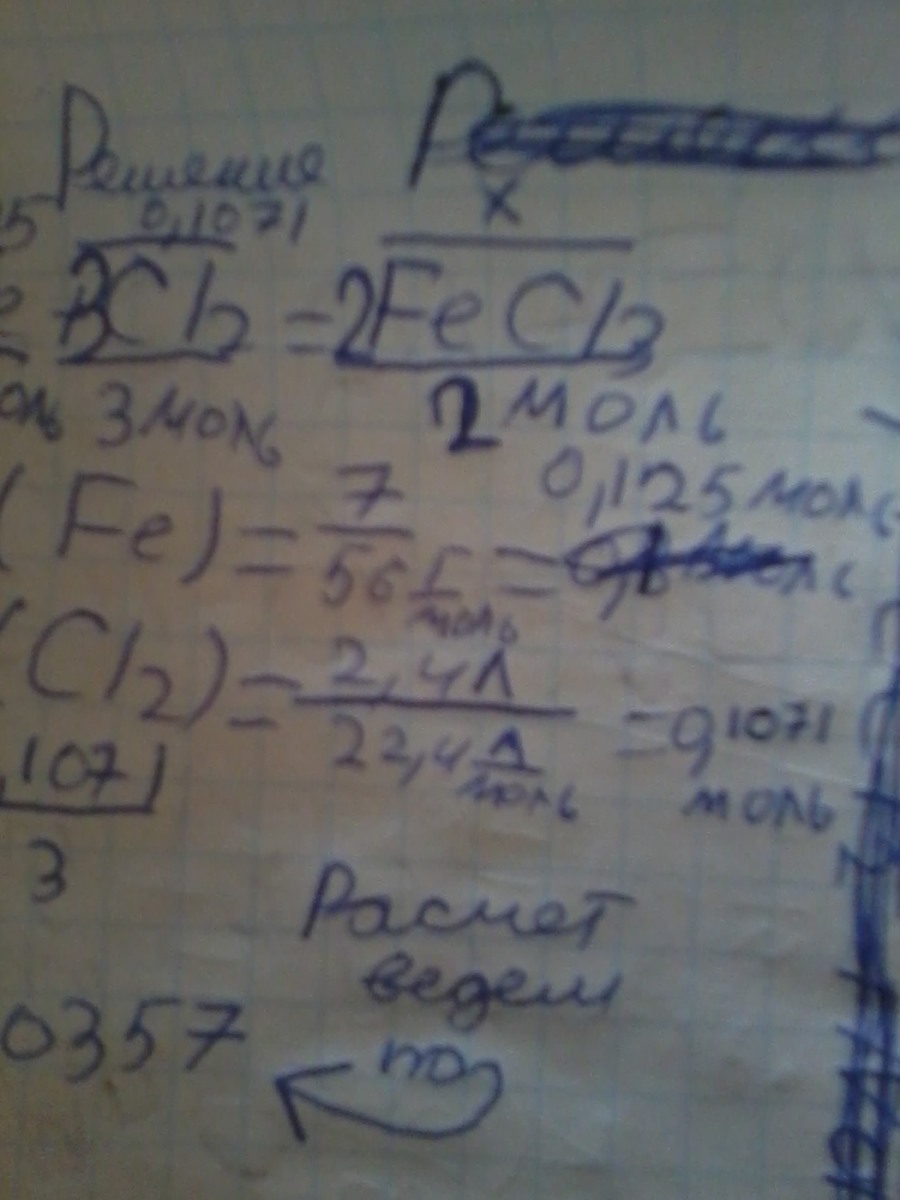 Решение
5 0,1071 x
3Cl2 = 2FeCl3
оль 3 моль 2 моль
(Fe) = 7 / 56 г/моль = 0,125 моль
(Cl2) = 2,4 л / 22,4 л/моль = 0,1071 моль
,1071 / 3
0357
Расчет
ведем
по